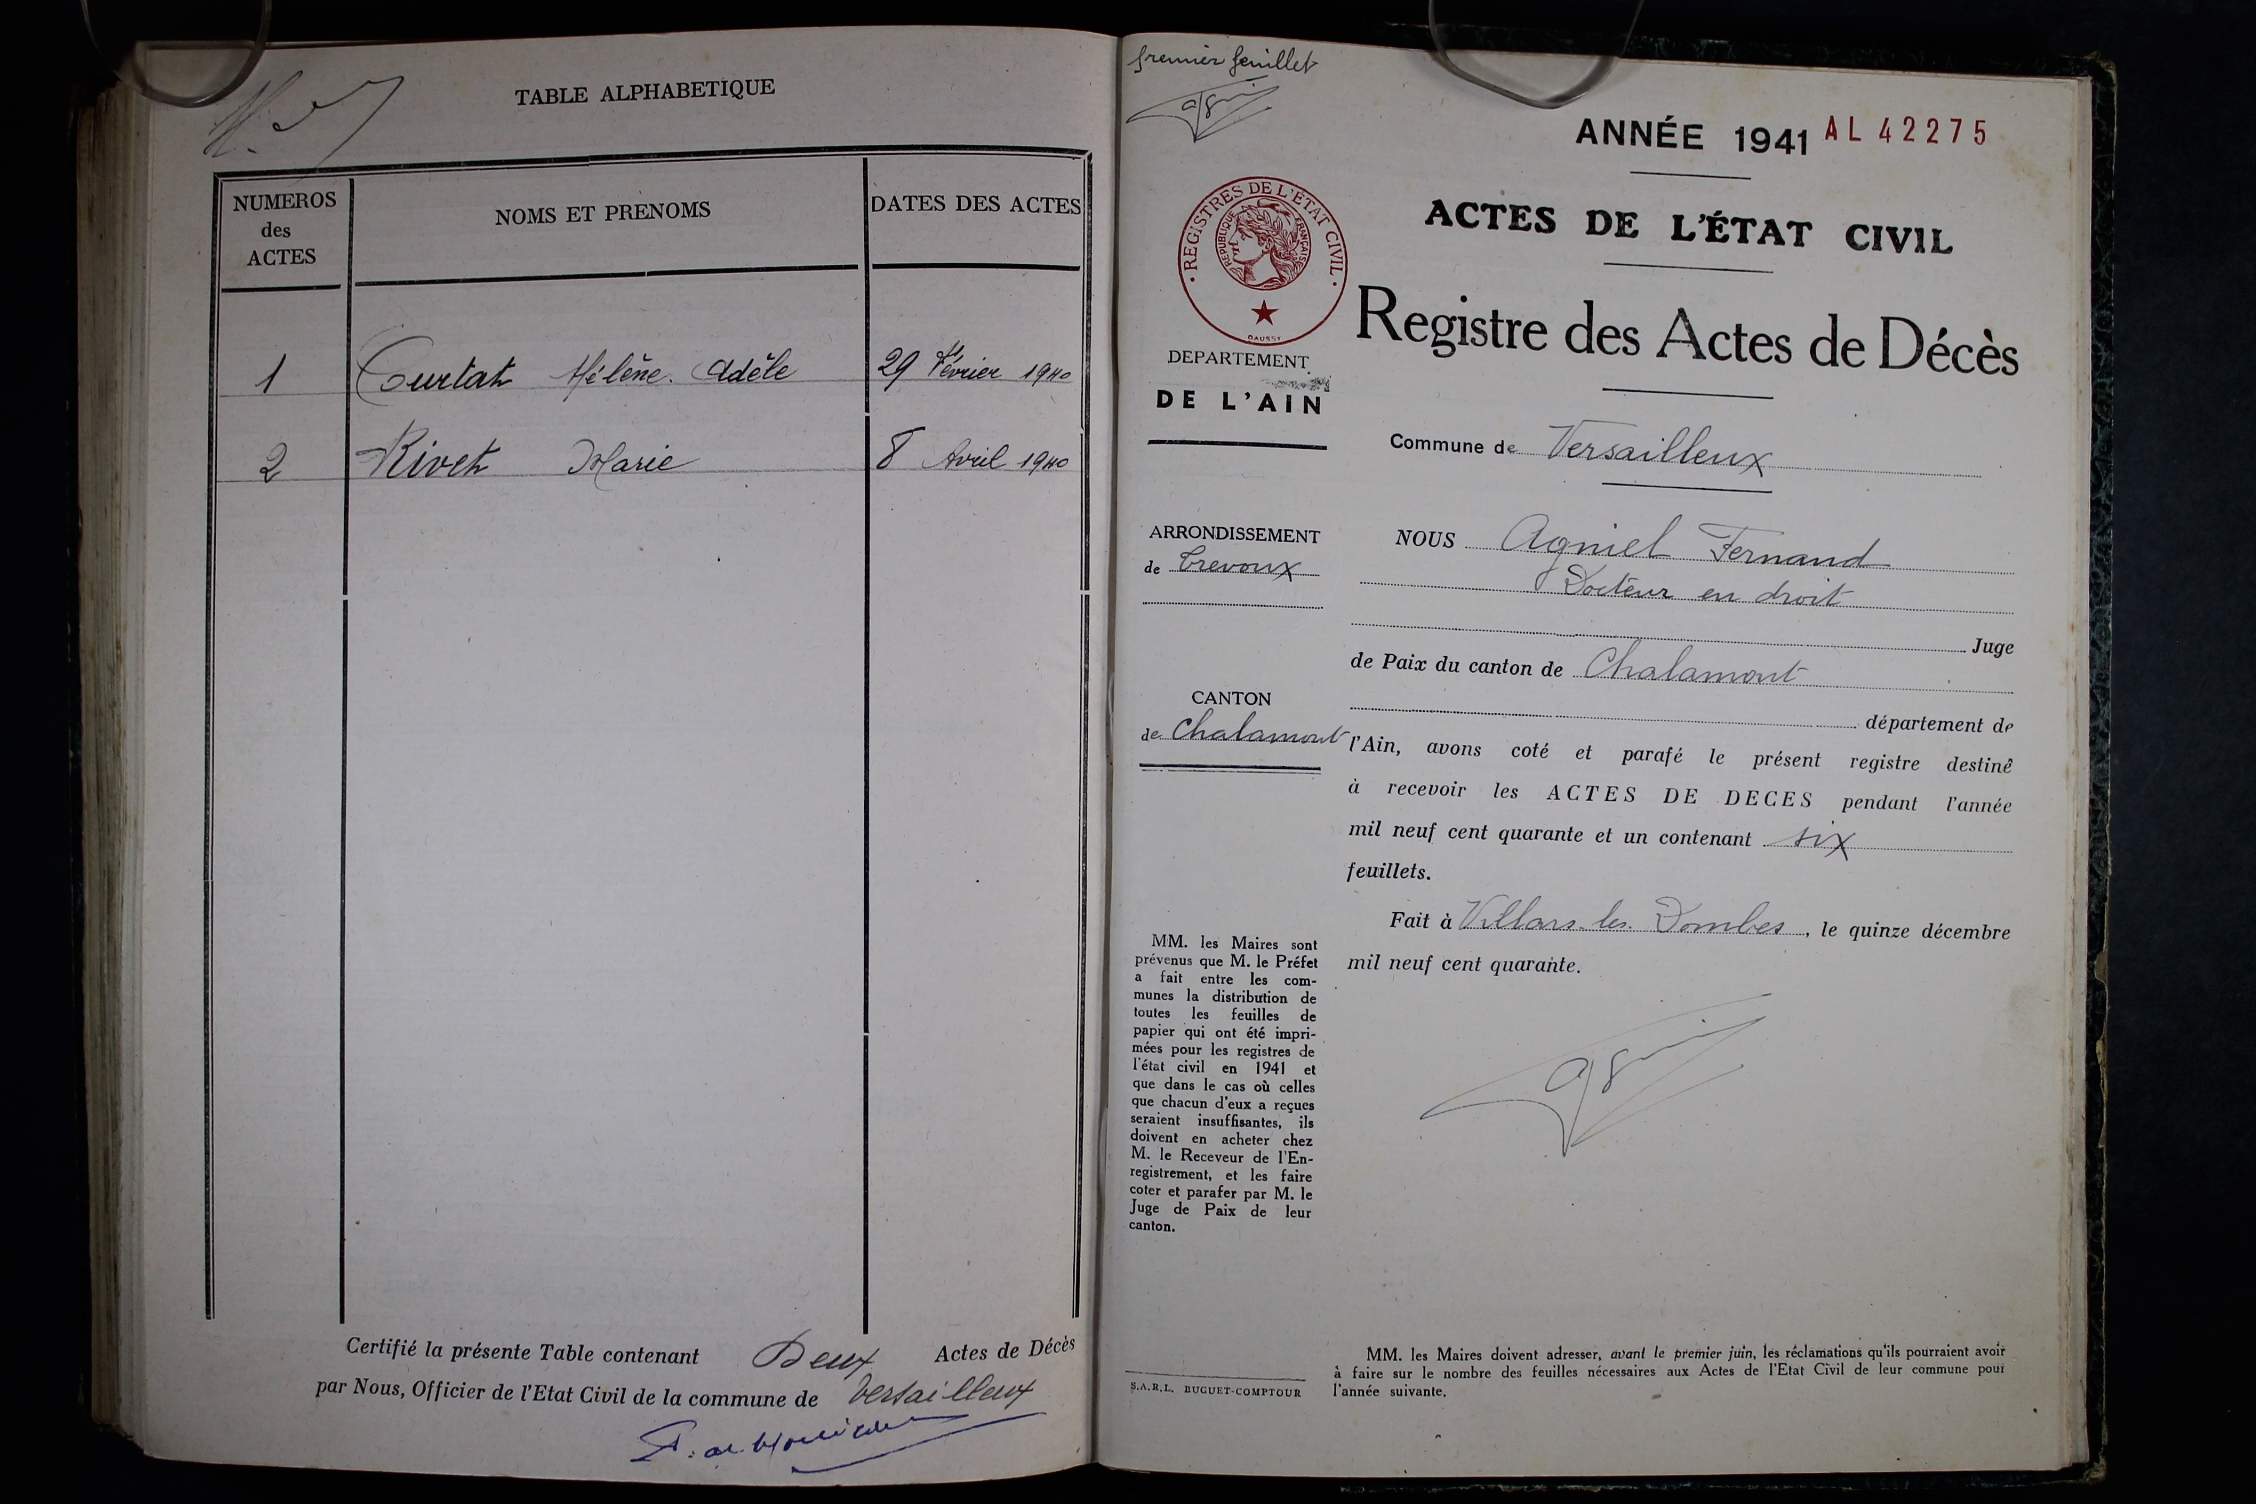 TABLE ALPHABETIQUE
NUMEROS
des
ACTES
NOMS ET PRENOMS
DATES DES ACTES
1 Curtat Hélène Adèle 29 Février 1940
2 Rivet Marie 8 Avril 1940
Certifié la présente Table contenant Deux Actes de Décès
par Nous, Officier de l'Etat Civil de la commune de Versailleux
premier feuillet
ANNÉE 1941 AL 42275
ACTES DE L'ÉTAT CIVIL
Registre des Actes de Décès
· REGISTRES DE L'ÉTAT CIVIL ·
REPUBLIQUE FRANÇAISE
DAUSSY
DEPARTEMENT
DE L'AIN
Commune de Versailleux
ARRONDISSEMENT
de Trevoux
CANTON
de Chalamont
NOUS Agniel Fernand
Docteur en droit
Juge
de Paix du canton de Chalamont
département de
l'Ain, avons coté et parafé le présent registre destiné
à recevoir les ACTES DE DECES pendant l'année
mil neuf cent quarante et un contenant six
feuillets.
Fait à Villars les Dombes, le quinze décembre
mil neuf cent quarante.
MM. les Maires sont
prévenus que M. le Préfet
a fait entre les com-
munes la distribution de
toutes les feuilles de
papier qui ont été impri-
mées pour les registres de
l'état civil en 1941 et
que dans le cas où celles
que chacun d'eux a reçues
seraient insuffisantes, ils
doivent en acheter chez
M. le Receveur de l'En-
registrement, et les faire
coter et parafer par M. le
Juge de Paix de leur
canton.
S.A.R.L. BUGUET-COMPTOUR
MM. les Maires doivent adresser, avant le premier juin, les réclamations qu'ils pourraient avoir
à faire sur le nombre des feuilles nécessaires aux Actes de l'Etat Civil de leur commune pour
l'année suivante.